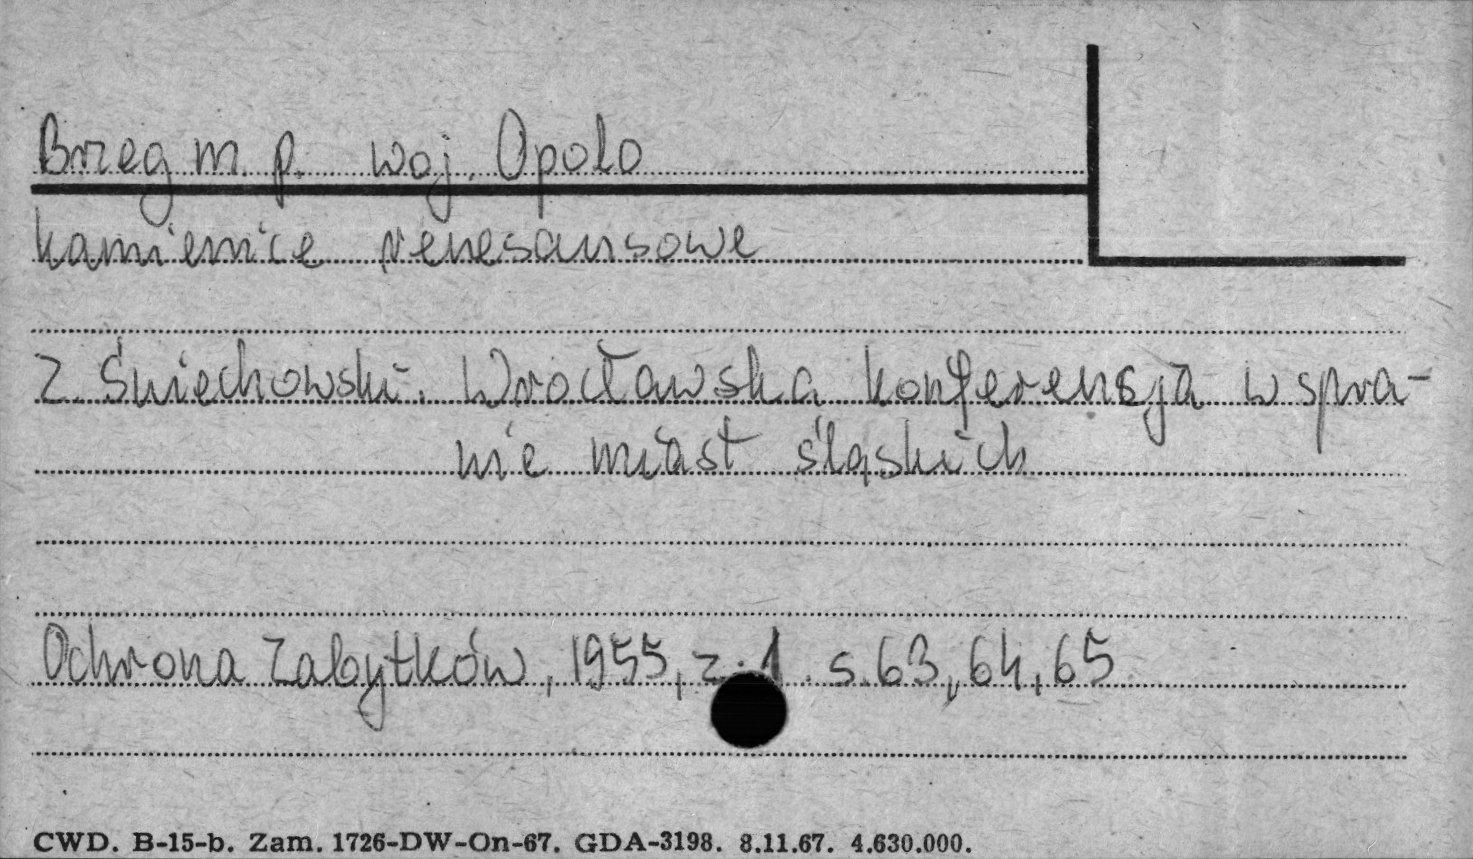 Brzeg m. p. woj. Opolo
kamienice renesansowe
Z. Świechowski. Wrocławska konferencja w spra-
wie miast śląskich
Ochrona Zabytków, 1955, z. 1. s. 63, 64, 65
CWD. B-15-b. Zam. 1726-DW-On-67. GDA-3198. 8.11.67. 4.630.000.